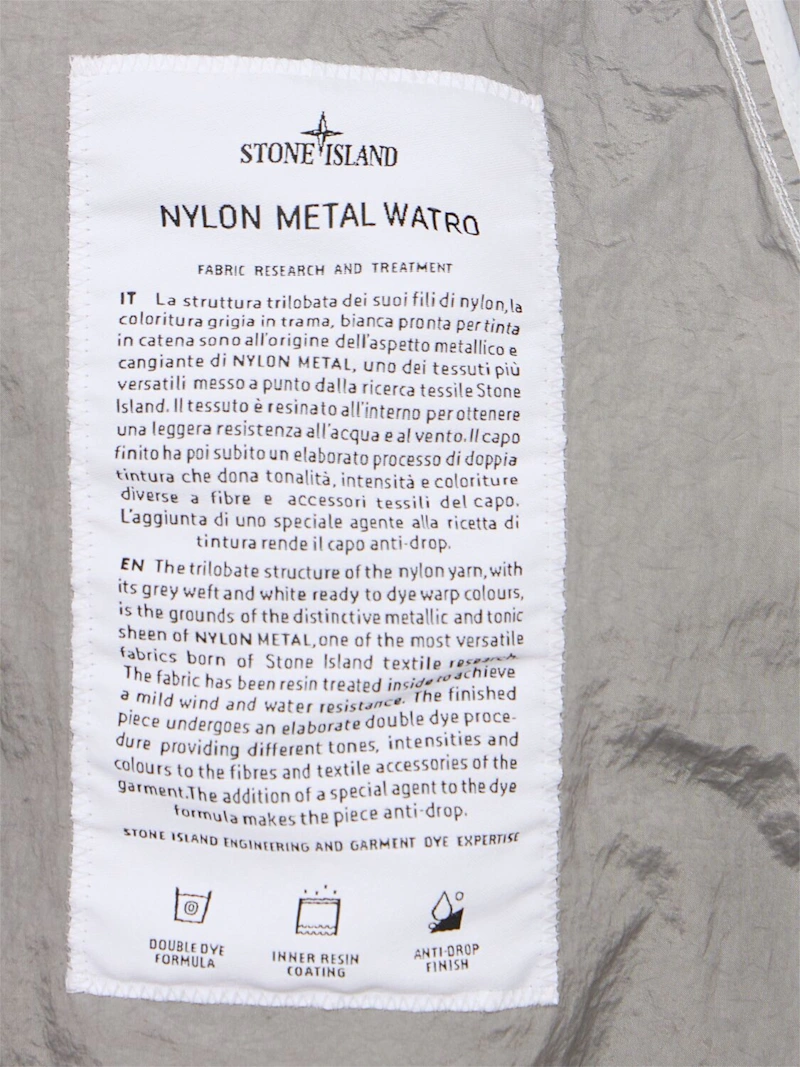 STONE ISLAND
NYLON METAL WATRO
FABRIC RESEARCH AND TREATMENT
IT La struttura trilobata dei suoi fili di nylon, la
coloritura grigia in trama, bianca pronta per tinta
in catena sono all'origine dell'aspetto metallico e
cangiante di NYLON METAL, uno dei tessuti più
versatili messo a punto dalla ricerca tessile Stone
Island. Il tessuto è resinato all'interno per ottenere
una leggera resistenza all'acqua e al vento. Il capo
finito ha poi subito un elaborato processo di doppia
tintura che dona tonalità, intensità e coloriture
diverse a fibre e accessori tessili del capo.
L'aggiunta di uno speciale agente alla ricetta di
tintura rende il capo anti-drop.
EN The trilobate structure of the nylon yarn, with
its grey weft and white ready to dye warp colours,
is the grounds of the distinctive metallic and tonic
sheen of NYLON METAL, one of the most versatile
fabrics born of Stone Island textile research.
The fabric has been resin treated inside to achieve
a mild wind and water resistance. The finished
piece undergoes an elaborate double dye proce-
dure providing different tones, intensities and
colours to the fibres and textile accessories of the
garment. The addition of a special agent to the dye
formula makes the piece anti-drop.
STONE ISLAND ENGINEERING AND GARMENT DYE EXPERTISE
DOUBLE DYE
FORMULA
INNER RESIN
COATING
ANTI-DROP
FINISH